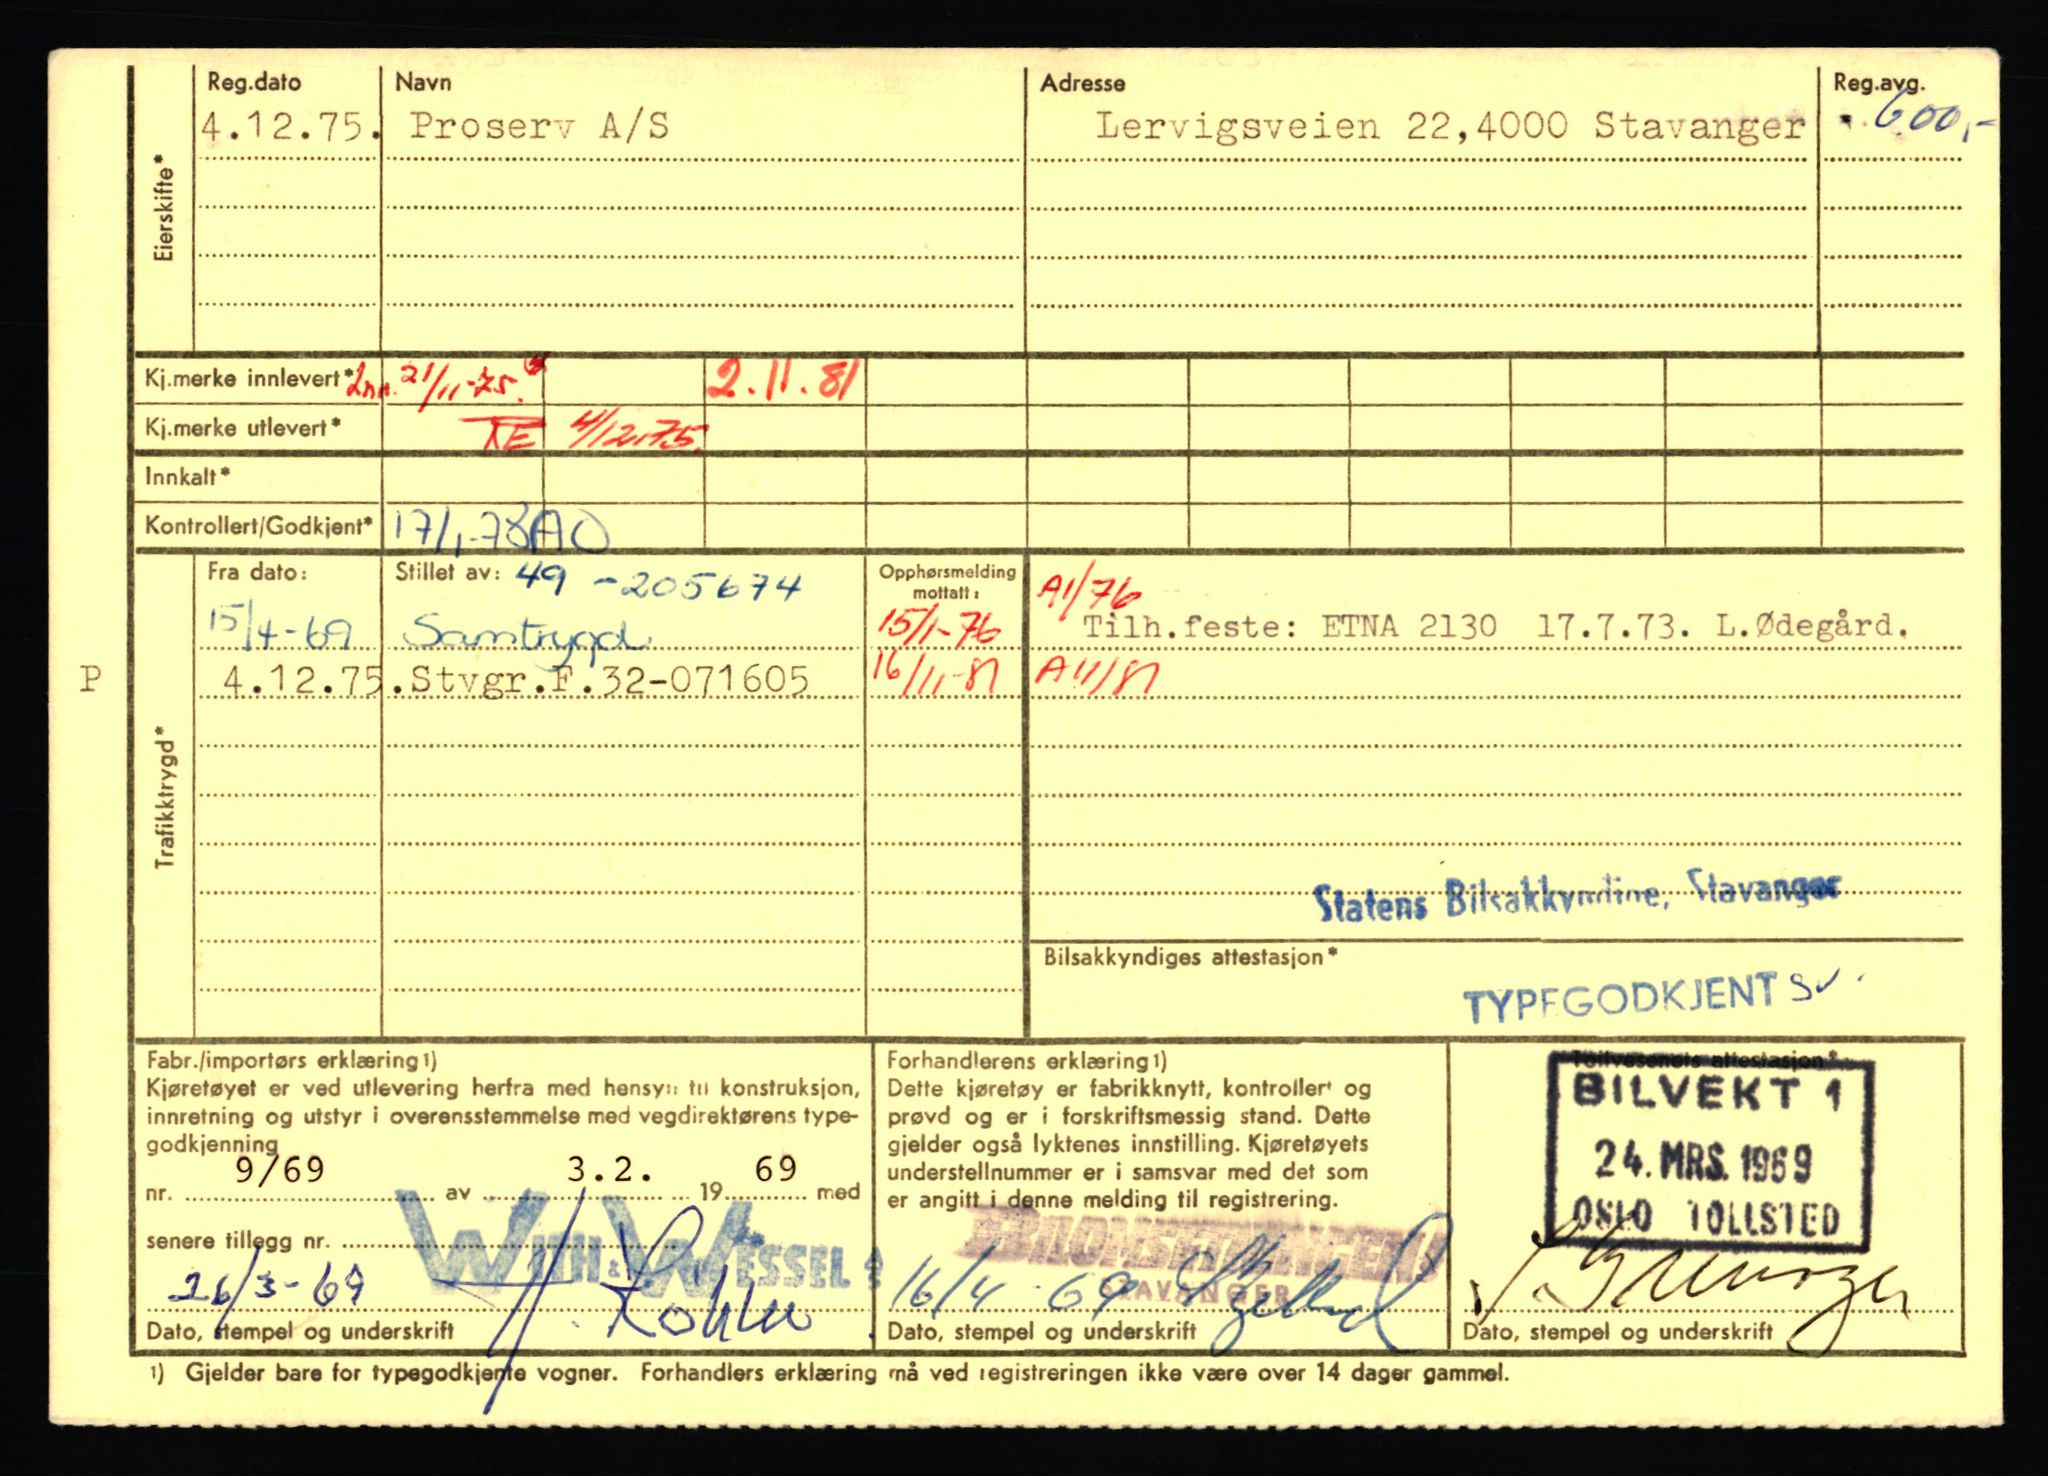 Reg.dato Navn Adresse Reg.avg.
4.12.75. Proserv A/S Lervigsveien 22,4000 Stavanger 600,-
Eierskifte*
Kj.merke innlevert* Inn. 21/11-75. 2.11.81
Kj.merke utlevert* 4/12.75.
Innkalt*
Kontrollert/Godkjent* 17/1-78 AO
Fra dato: Stillet av: 49-205674 Opphørsmelding mottatt: A1/76
15/4-69 Samtrygd 15/1-76 Tilh.feste: ETNA 2130 17.7.73. L.Ødegård.
P 4.12.75.Stvgr.F.32-071605 16/11-81 A11/81
Trafikktrygd*
Statens Bilsakkyndige, Stavanger
Bilsakkyndiges attestasjon*
TYPEGODKJENT
Fabr./importørs erklæring1)
Kjøretøyet er ved utlevering herfra med hensyn til konstruksjon,
innretning og utstyr i overensstemmelse med vegdirektørens type-
godkjenning
nr. 9/69 av 3.2. 19 69 med
senere tillegg nr.
WITH & WESSEL A/S
26/3-69
Dato, stempel og underskrift
Forhandlerens erklæring1)
Dette kjøretøy er fabrikknytt, kontrollert og
prøvd og er i forskriftsmessig stand. Dette
gjelder også lyktenes innstilling. Kjøretøyets
understellnummer er i samsvar med det som
er angitt i denne melding til registrering.
BILOMSETNINGEN
STAVANGER
16/4-69
Dato, stempel og underskrift
Tollvesenets attestasjon*
BILVEKT 1
24. MRS. 1969
OSLO TOLLSTED
Dato, stempel og underskrift
1) Gjelder bare for typegodkjente vogner. Forhandlers erklæring må ved registreringen ikke være over 14 dager gammel.